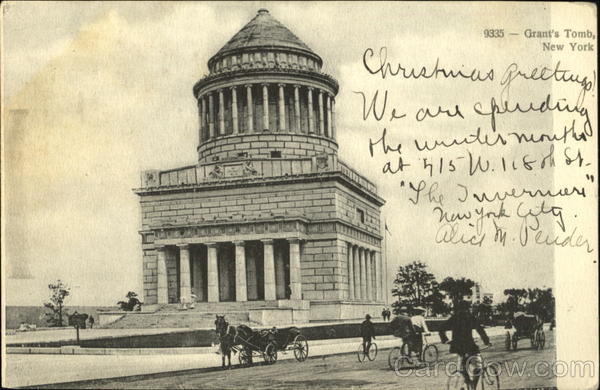 9335 — Grant's Tomb,
New York
Christmas Greetings!
We are spending
the winter months
at 515 W. 118th St.
"The Invermere"
New York City.
Alice M. Pender
CardCow.com